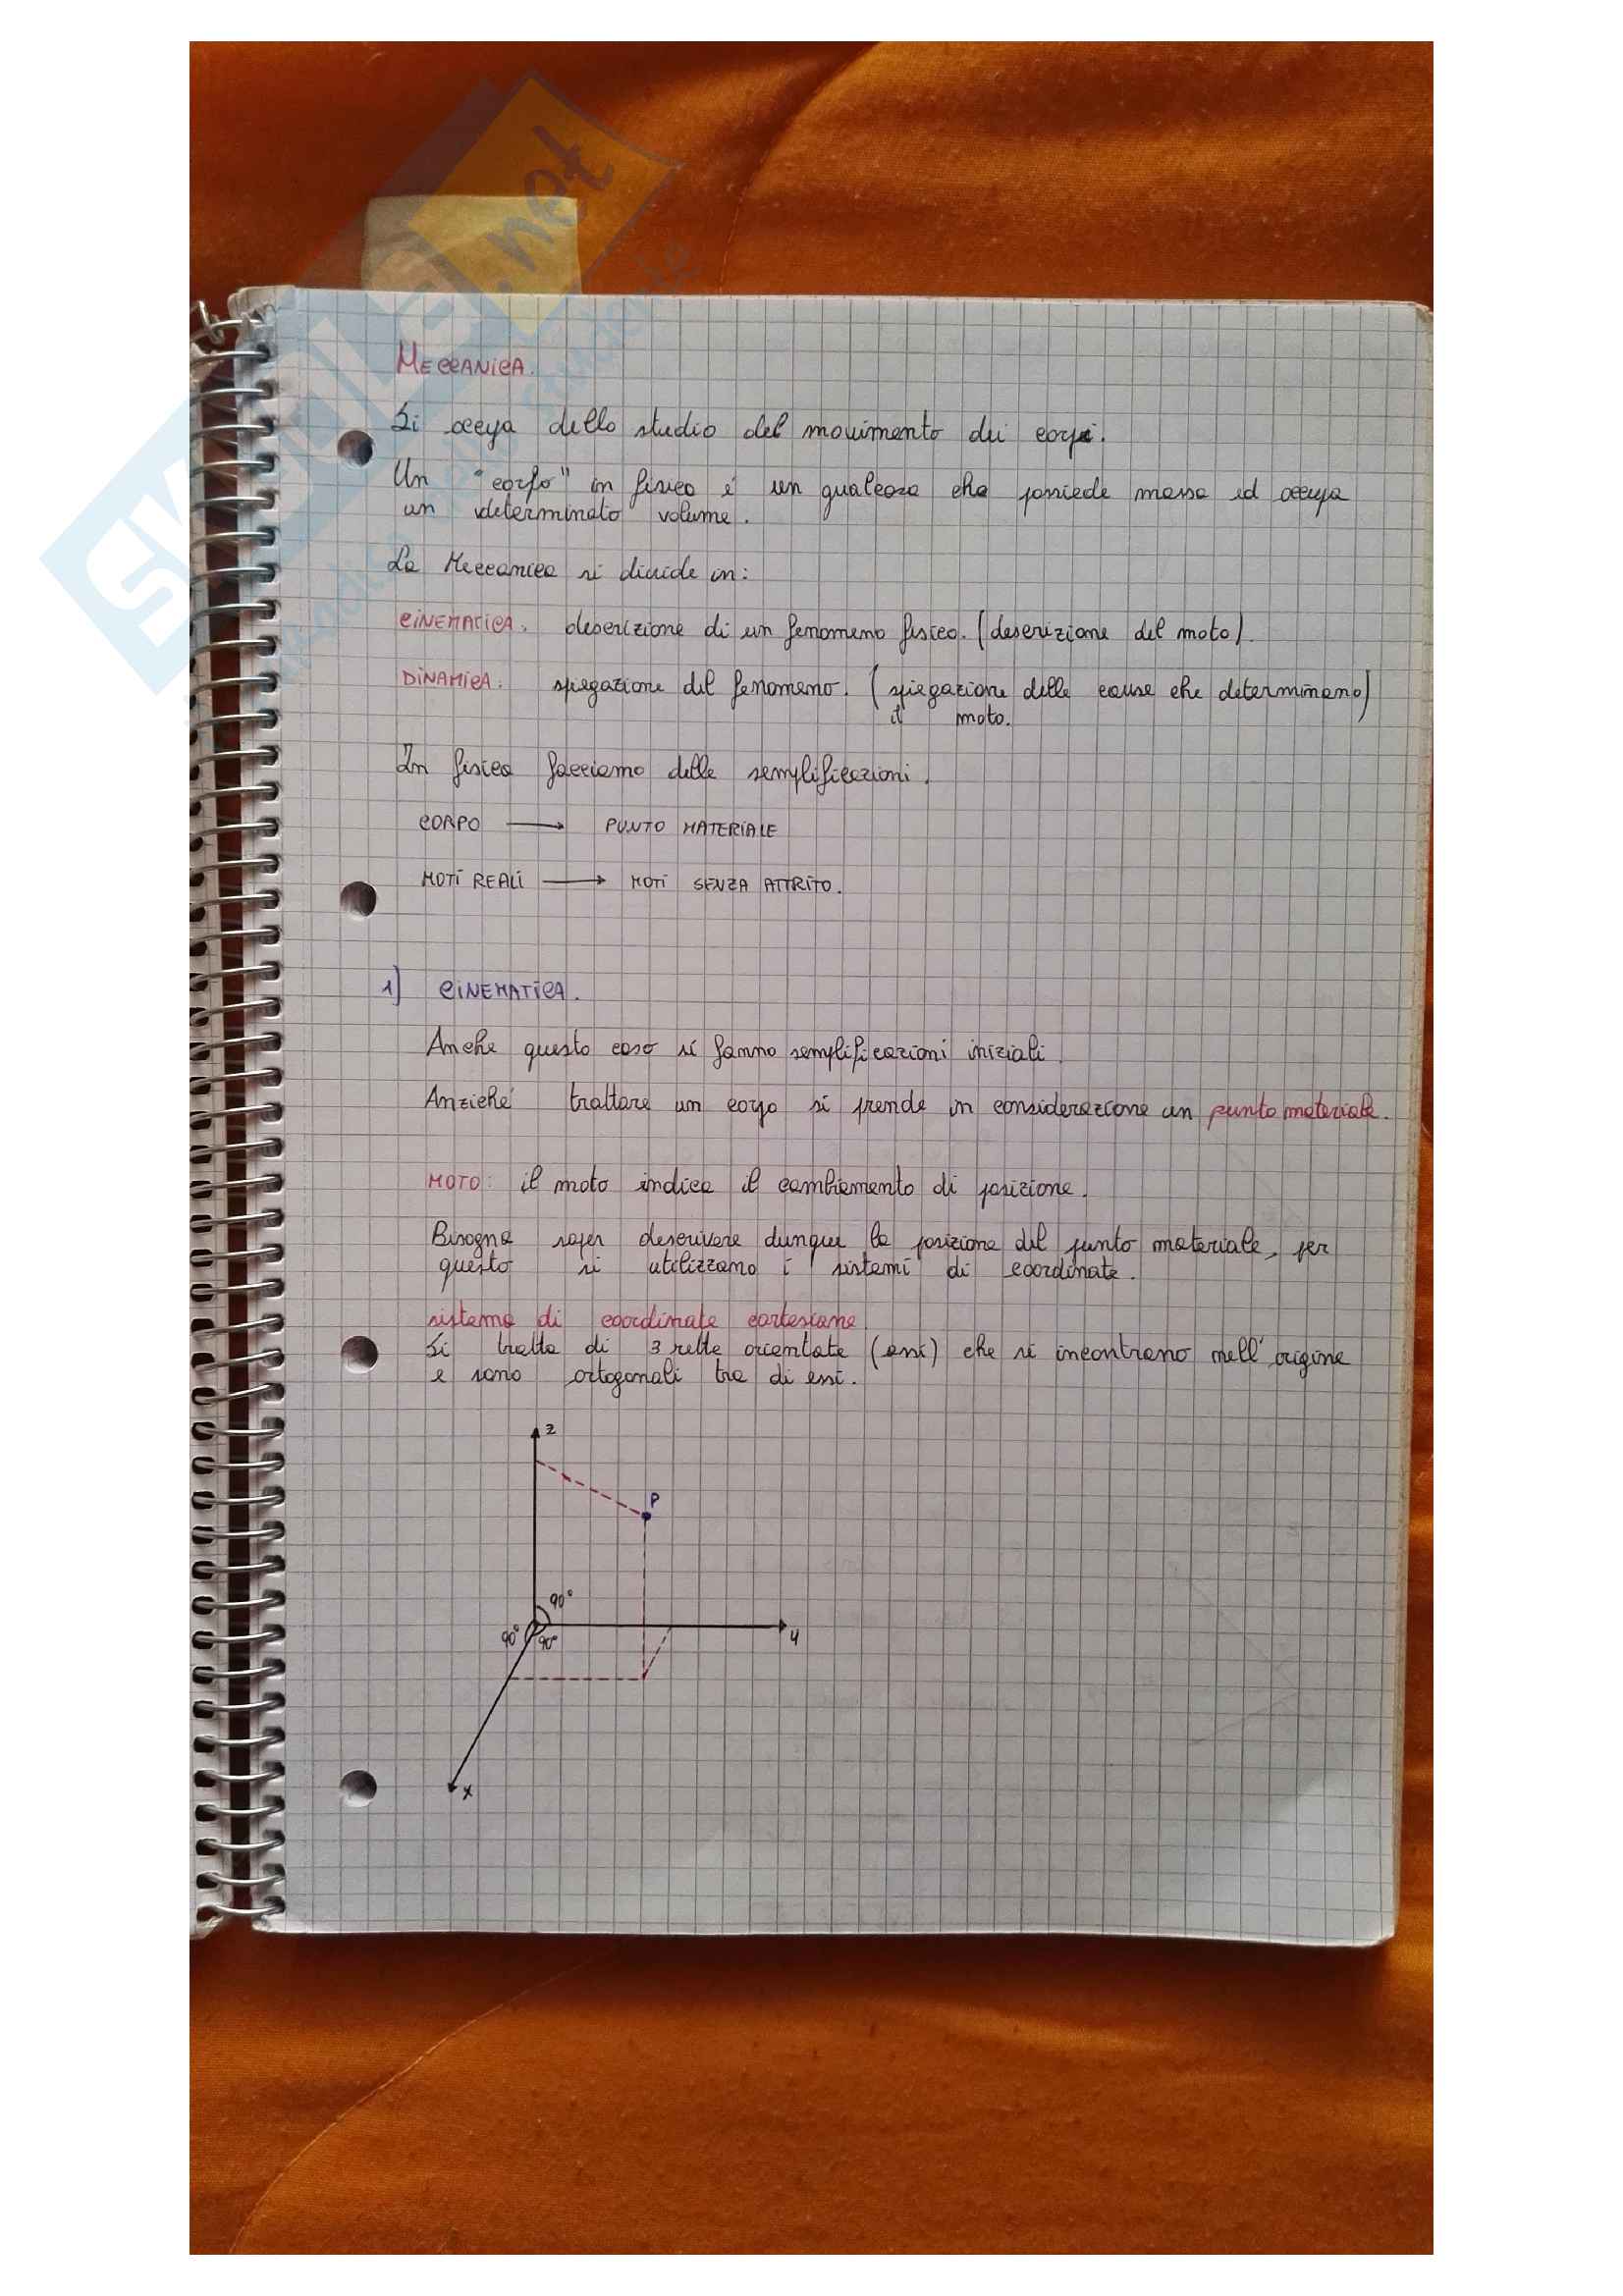 MECCANICA.
Si occupa dello studio del movimento dei corpi.
Un "corpo" in fisica è un qualcosa che possiede massa ed occupa
un determinato volume.
La Meccanica si divide in:
CINEMATICA: descrizione di un fenomeno fisico. (descrizione del moto).
DINAMICA: spiegazione del fenomeno. (spiegazione delle cause che determinano)
il moto.
In fisica facciamo delle semplificazioni.
CORPO → PUNTO MATERIALE
MOTI REALI → MOTI SENZA ATTRITO.
1) CINEMATICA.
Anche questo caso si fanno semplificazioni iniziali.
Anziché trattare un corpo si prende in considerazione un punto materiale.
MOTO: il moto indica il cambiamento di posizione.
Bisogna saper descrivere dunque la posizione del punto materiale, per
questo si utilizzano i sistemi di coordinate.
sistema di coordinate cartesiane.
Si tratta di 3 rette orientate (assi) che si incontrano nell'origine
e sono ortogonali tra di essi.
z
P
90°
90° 90°
y
x
SKUOLA.net